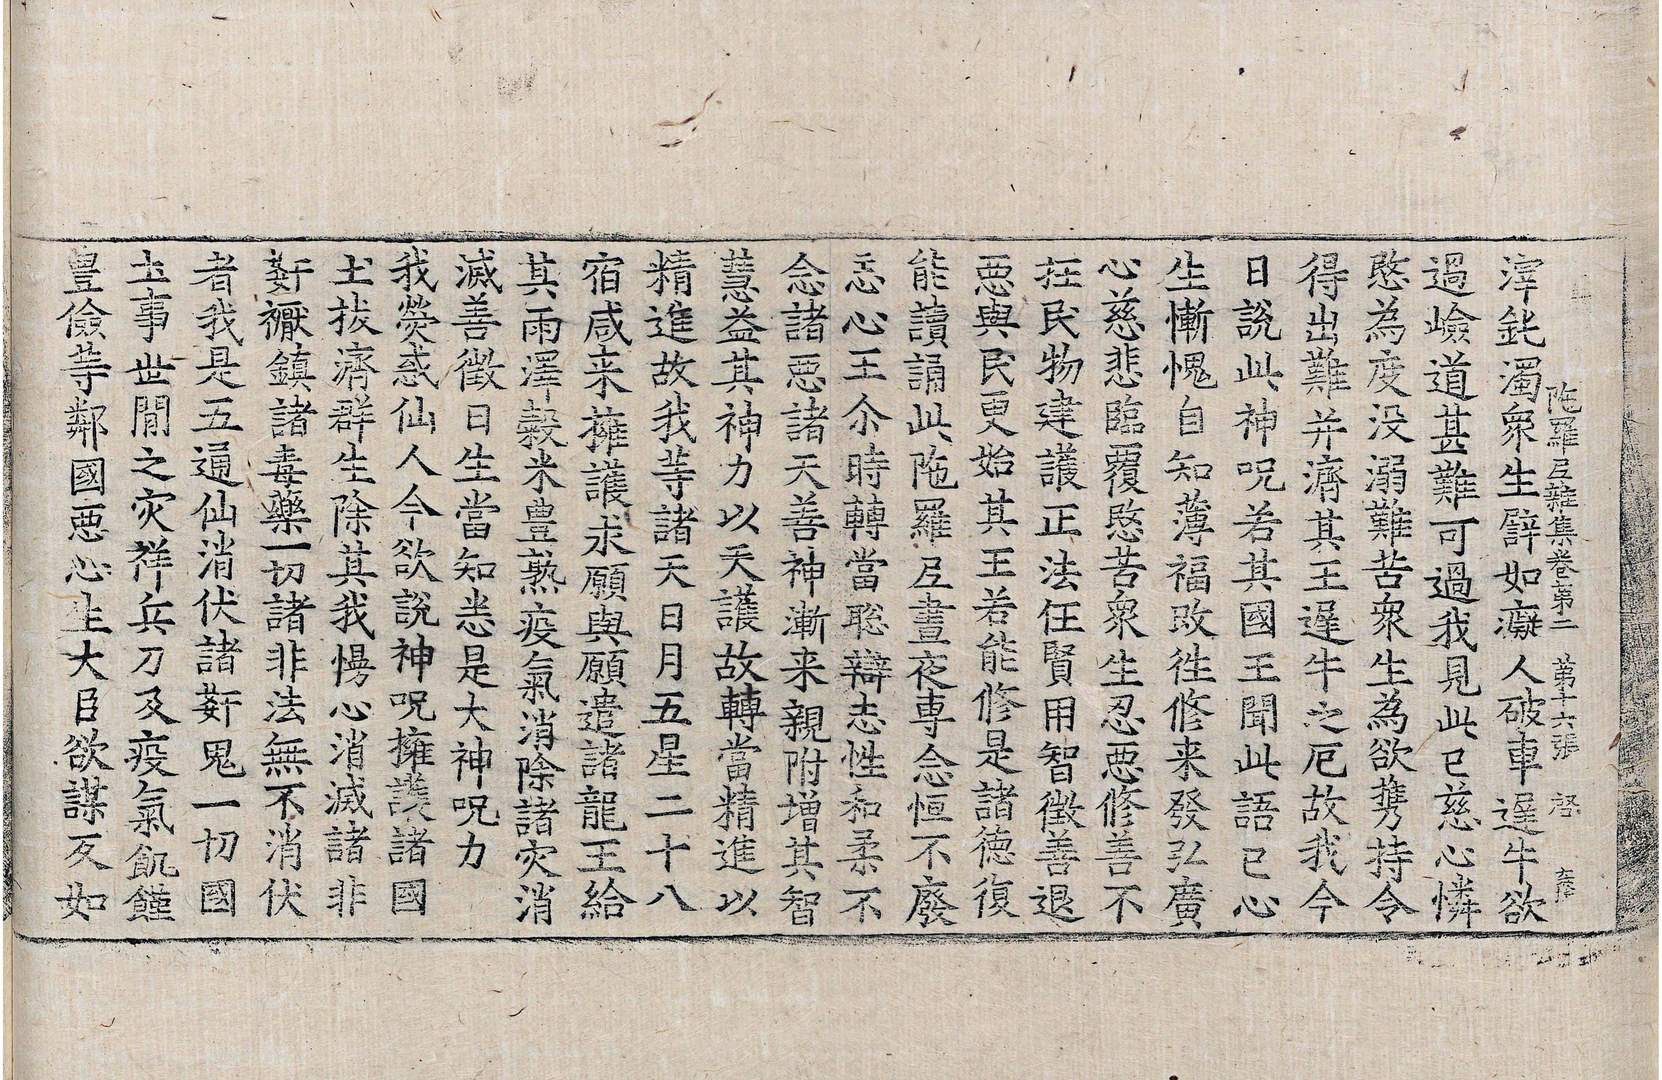 陁羅尼雜集卷第二 第十六張 啓
滓鈋濁衆生譬如癡人破車遲牛欲
過嶮道甚難可過我見此已慈心憐
愍為度没溺難苦衆生為欲携持令
得出難并濟其王遲牛之厄故我今
日說此神呪若其國王聞此語已心
生慚愧自知薄福改徃修来發弘廣
心慈悲臨覆愍苦衆生忍惡修善不
抂民物建護正法任賢用智徵善退
惡與民更始其王若能修是諸德復
能讀誦此陁羅尼晝夜専念恒不廢
忘心王尒時轉當聡辯志性和柔不
念諸惡諸天善神漸来親附增其智
慧益其神力以天護故轉當精進以
精進故我等諸天日月五星二十八
宿咸来擁護求願與願遣諸龍王給
其雨澤穀米豊熟疫氣消除諸灾消
滅善徵日生當知悉是大神呪力
我熒惑仙人今欲說神呪擁護諸國
土拔濟群生除其我愕心消滅諸非
姧禳鎮諸毒藥一切諸非法無不消伏
者我是五通仙消伏諸姧鬼一切國
土事世間之灾祥兵刀及疫氣飢饉
豊儉等鄰國惡心生大臣欲謀反如